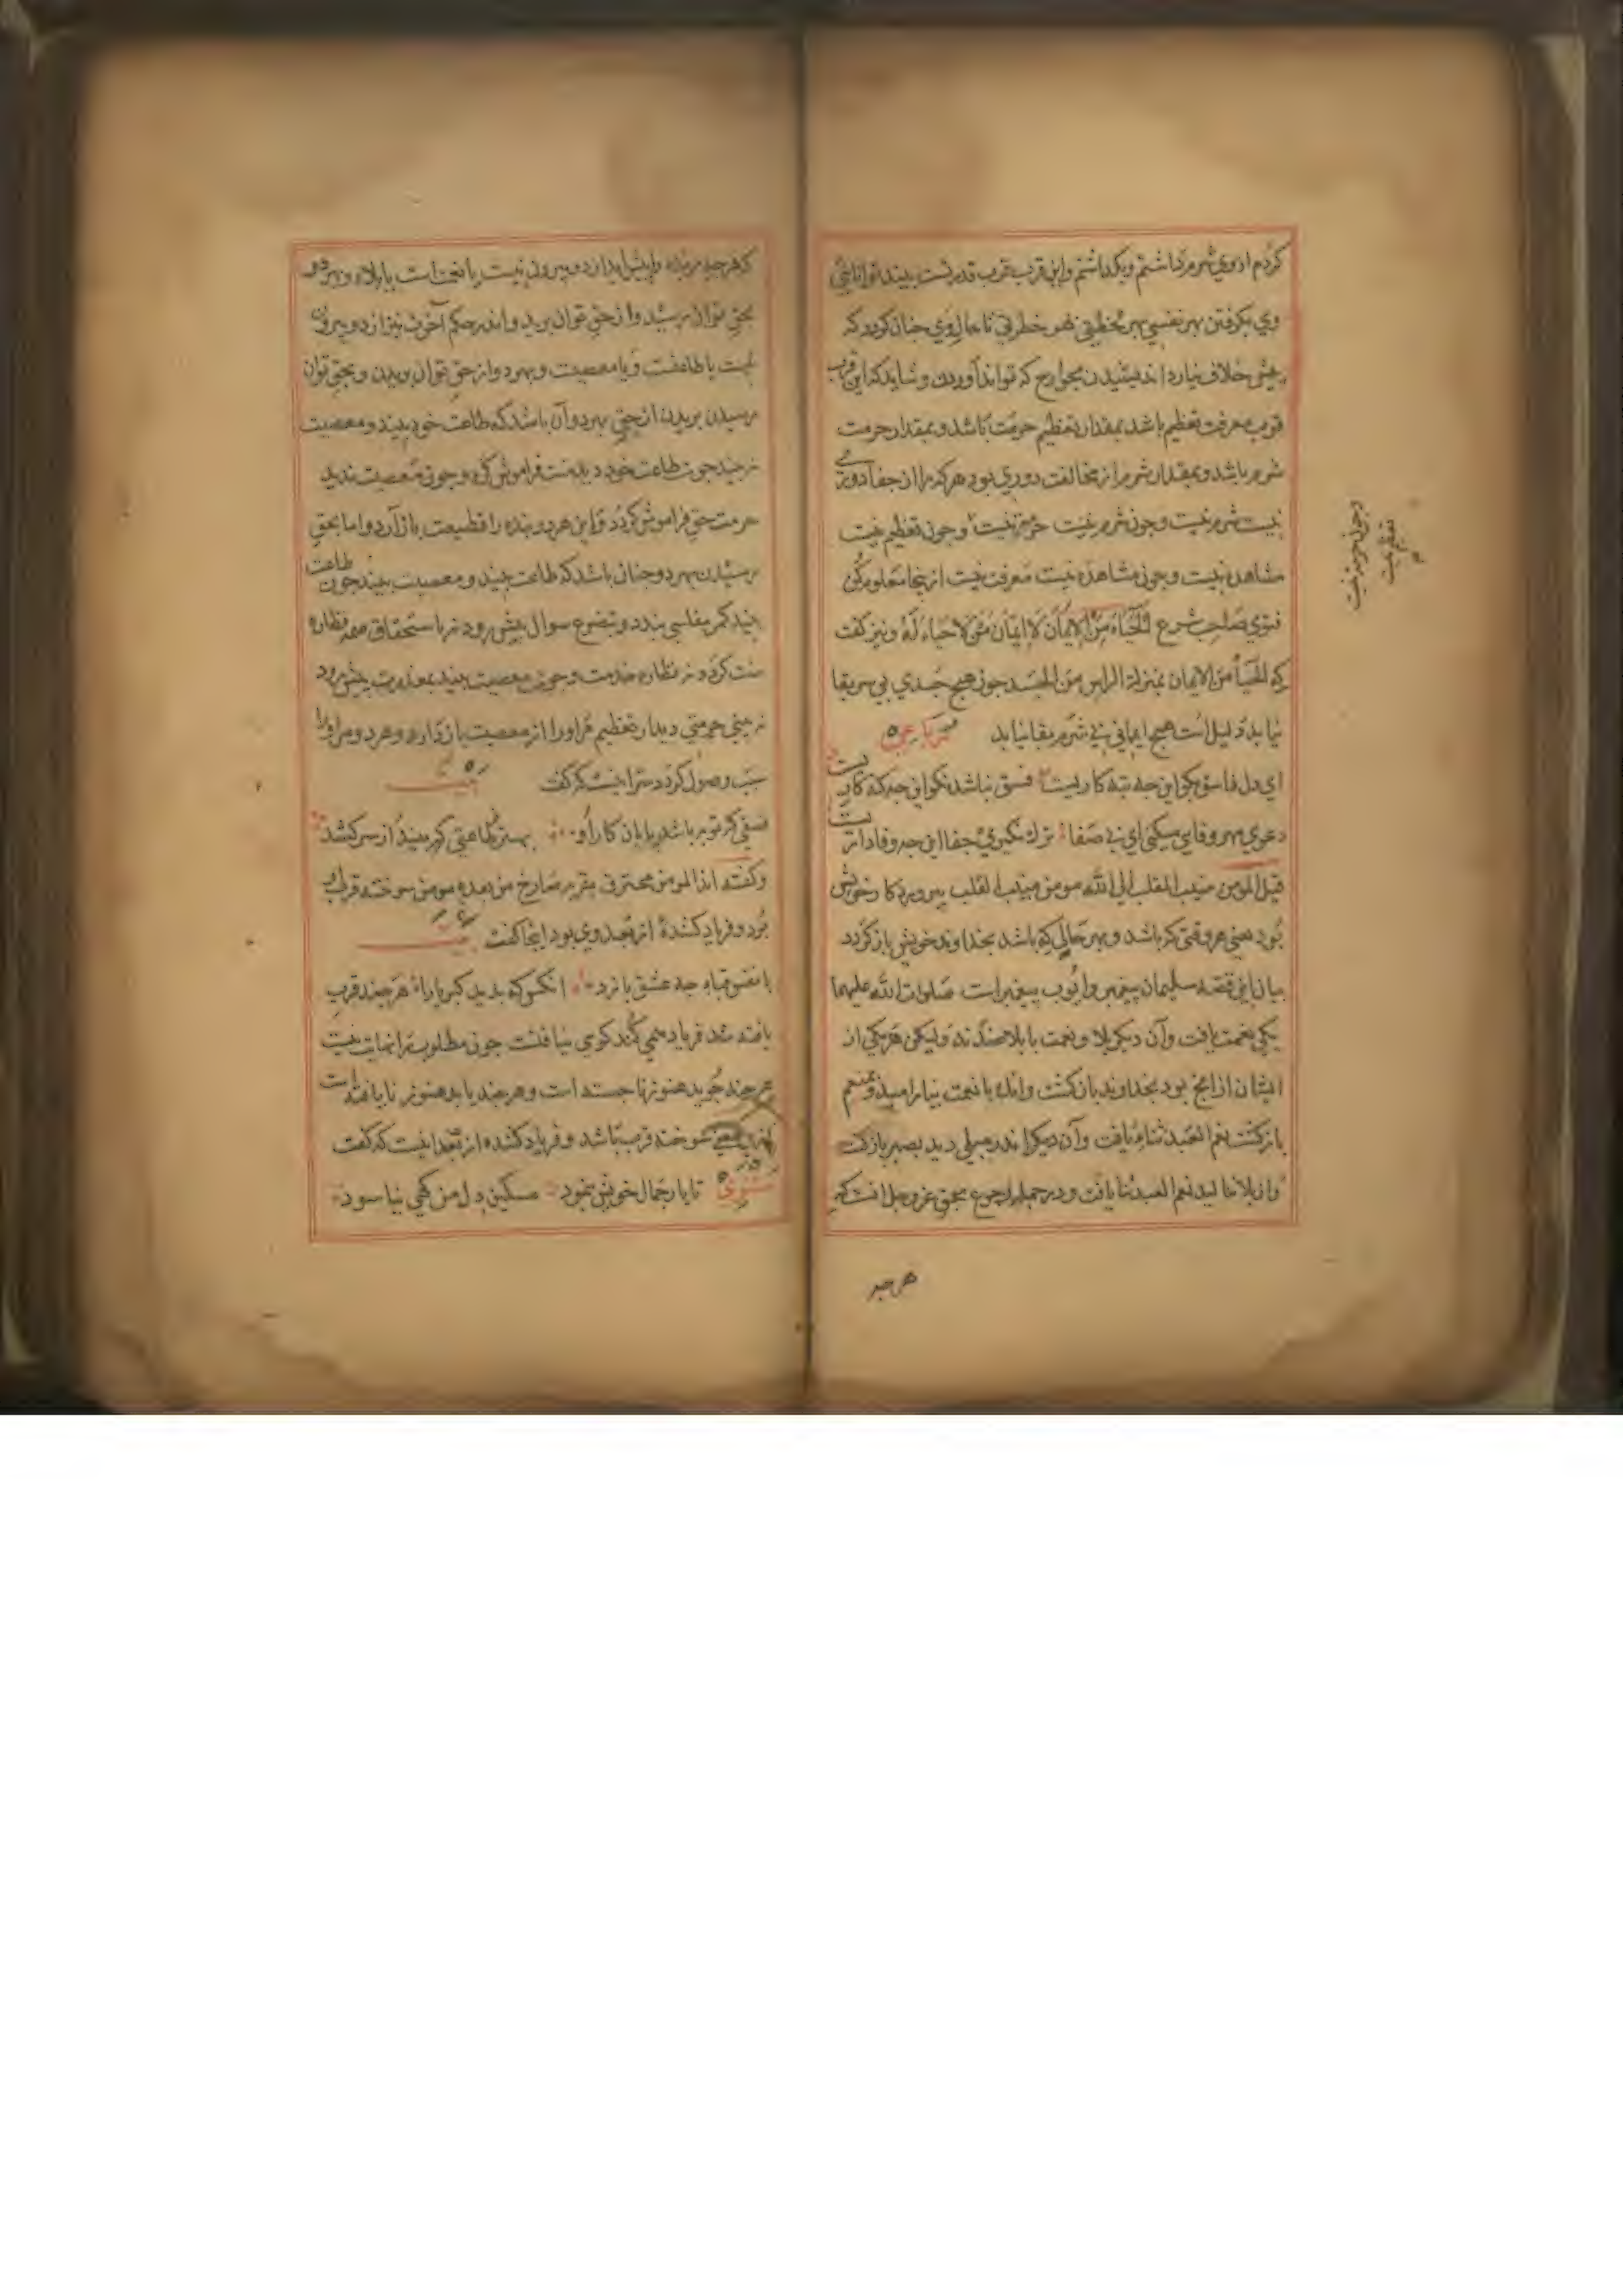 کردم از وی شرم داشتم و بگذاشتم و این قرب قرب قدرتست بیند توانائی
وی بگرفتن بهر نفسی بهر لحظتی بهر خطرتی تا حال وی چنان گردد که
خلاف نیارد اندیشیدن بجوارح که تواند آوردن و شاید که این قرب
قرب معرفت تعظیم باشد بمقدار تعظیم حرمت باشد و بمقدار حرمت
شرم باشد و بمقدار شرم از مخالفت دوری بود هر که را از جفا دوری
نیست شرم نیست و چون شرم نیست حرمت نیست و چون تعظیم نیست
مشاهده نیست و چون مشاهده نیست معرفت نیست از اینجا معلوم کن
فتوی صاحب شرع الحیاء من الایمان لا ایمان لمن لا حیاء له و نیز گفت
که الحیاء من الایمان بمنزلة الراس من الجسد چون هیچ جسدی بی سر بقا
نیابد دلیل است هیچ ایمانی بی شرم بقا نیابد رباعی
ای دل فاسق بگو این چه تبه کاریست فسق نباشد نکو این چه گنه کاریست
دعوی مهر و وفا می کنی ای بی صفا ترک نگیری جفا این چه وفاداریست
قیل المومن منیب القلب الی الله مومن منیب القلب بپروردگار خویش
بود یعنی هر وقتی که باشد و بهر حالی که باشد بخداوند خویش باز گردد
بیان این قصه سلیمان پیغمبر و ایوب پیغمبر است صلوات الله علیهما
یکی نعمت یافت و آن دیگر بلا و نعمت با بلا ضدند ولیکن هر یکی از
ایشان از آنچ بود بخداوند باز گشت و آنک با نعمت بنیارامید و بمنعم
باز گشت نعم العبد ثناء یافت و آن دیگر اندر مبلی دید بصبر باز گشت
و از بلا ننالید نعم العبد ثنا یافت و در جمله رجوع بحق عز و جل آنست که
هر چه
و چون حرمت نیست
تعظیم نیست
که هر چه مر بنده را پیش آید از دو بیرون نیست یا نعمت است یا بلا و بهر دو
بحق توان رسید و از حق توان برید و اندر حکم آخرت نیز از دو بیرون
نیست یا طاعتست و یا معصیت و بهر دو از حق توان بریدن و بحق توان
رسیدن بریدن از حق بهر دو آن باشد که طاعت خود بیند و معصیت
نبیند چون طاعت خود دید منت فراموش کرد و چون معصیت ندید
حرمت حق فراموش کرد و این هر دو بنده را قطیعت باز آرد و اما بحق
رسیدن بهر دو چنان باشد که طاعت بیند و معصیت بیند چون طاعت
بیند کمر مفلسی بندد و بتضرع سوال پیش رود نه باستحقاق نظاره
منت گردد نه نظاره خدمت و چون معصیت بیند بمعذرت پیش رود
نه بی حرمتی دیدار تعظیم مر او را از معصیت باز دارد و هر دو مر او را
سبب وصول گردد سر اینست که گفت بیت
فسقی که توبه باشد پایان کار او بهتر ز طاعتی که ببیند از سر کشد
و گفته اند المومن محترق بقربه صارخ من بعده مومن سوخته قرب او
بود و فریاد کننده از بعد وی بود اینجا گفت بیت
با نفس تباه چه عشق بازد انکس که بدید کبریا را هر چند قرب
یافته شد فریاد همی کند گوی نیافتست چون مطلوب را نهایت نیست
هر چند جوید هنوز ناجسته است و هر چند یابد هنوز نایافته است
سوخته قرب باشد و فریاد کننده از بعد اینست که گفت
مثنوی تا یار جمال خویش بنمود مسکین دل من کهی نیاسود